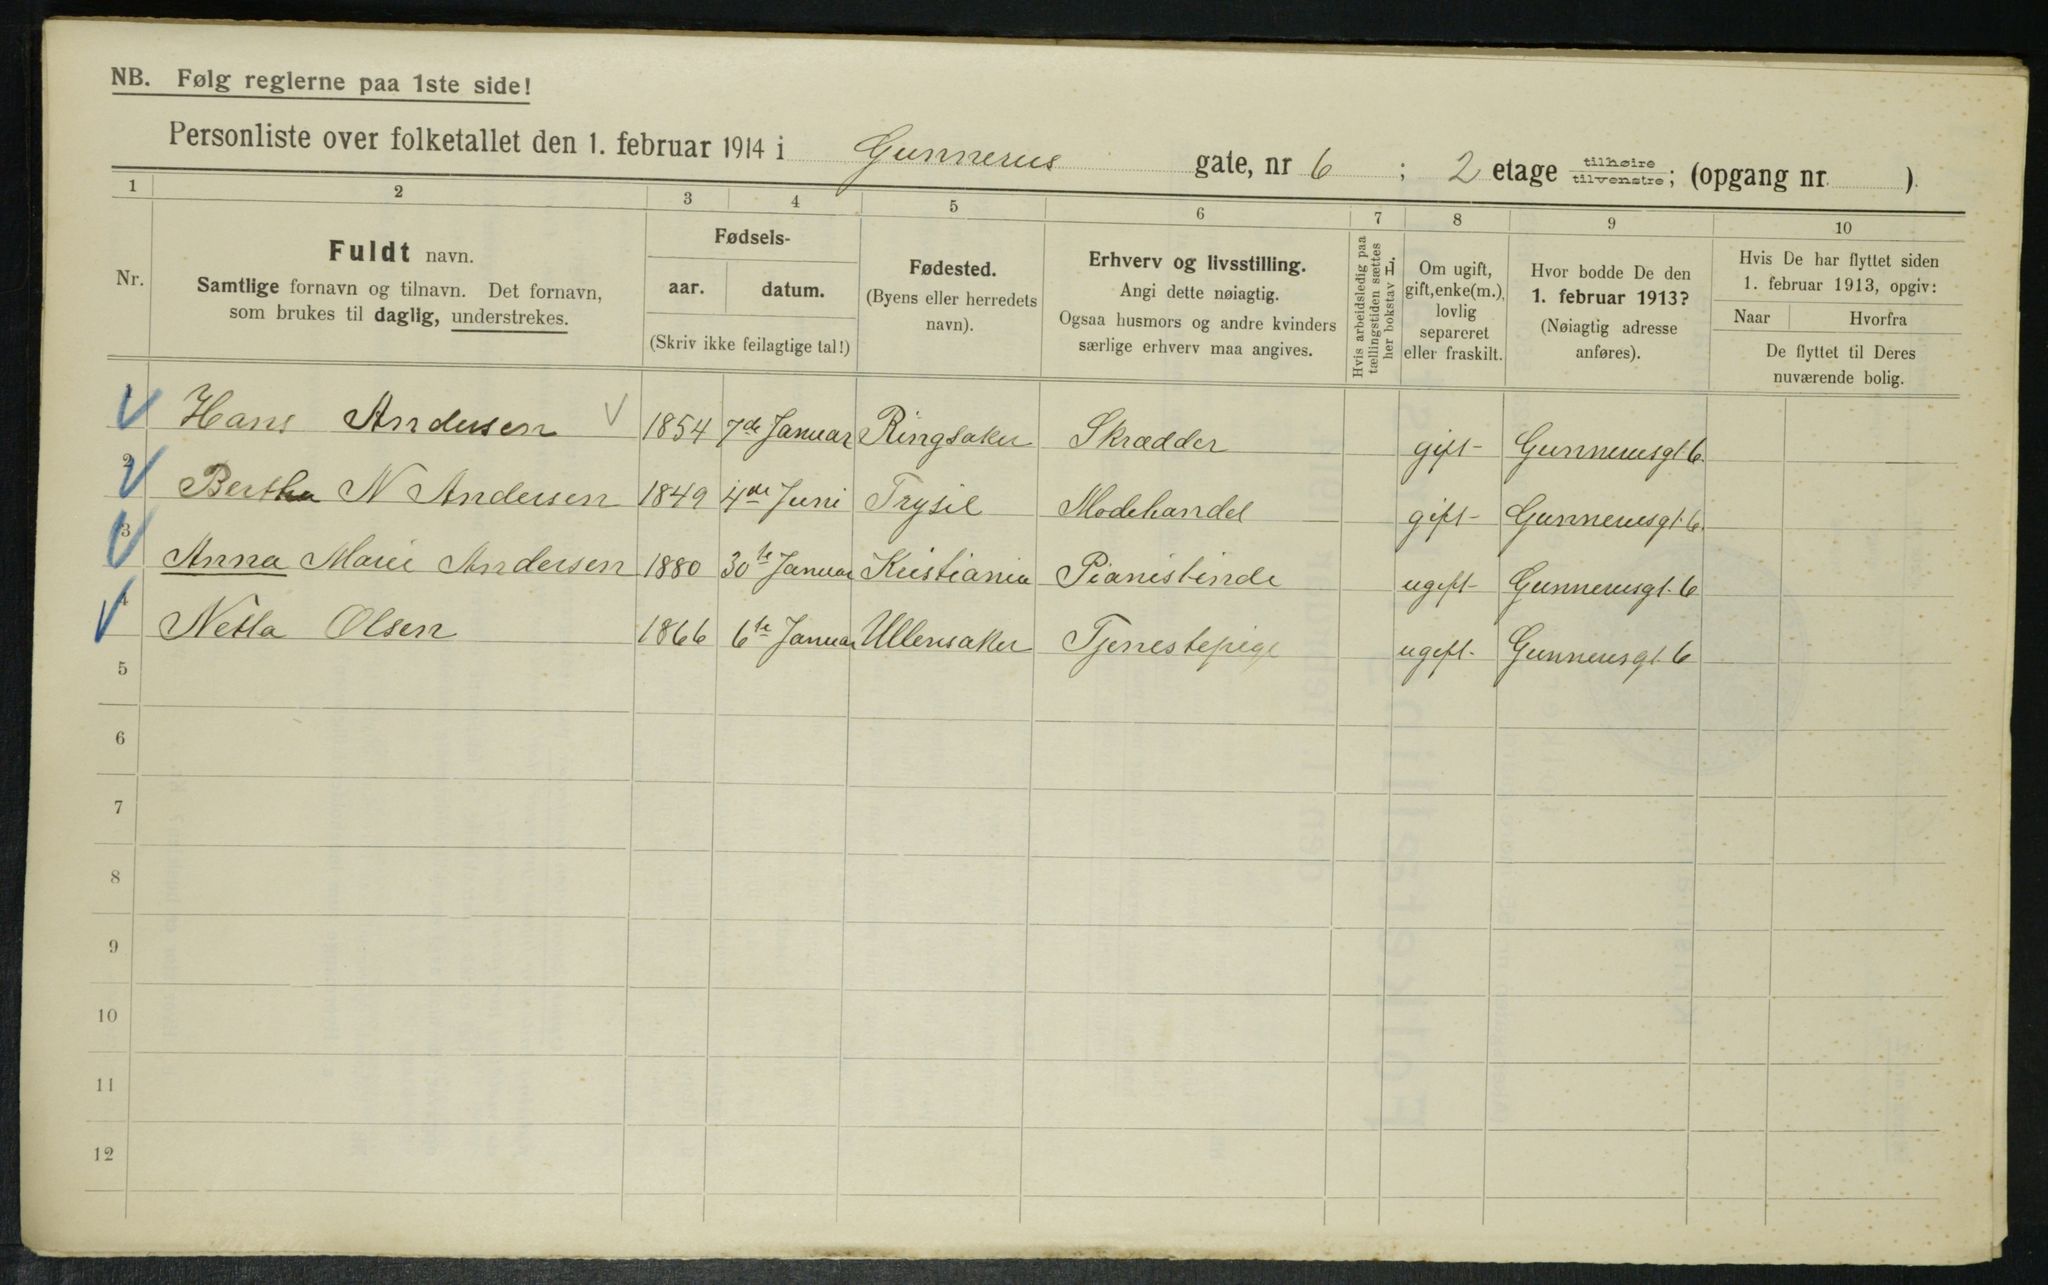 NB. Følg reglerne paa 1ste side!
Personliste over folketallet den 1. februar 1914 i Gunnerus gate, nr 6 ; 2 etage tilhøire tilvenstre; (opgang nr. ).
1 2 3 4 5 6 7 8 9 10
Nr.
Fuldt navn.
Samtlige fornavn og tilnavn. Det fornavn,
som brukes til daglig, understrekes.
Fødsels-
aar. datum.
(Skriv ikke feilagtige tal!)
Fødested.
(Byens eller herredets
navn).
Erhverv og livsstilling.
Angi dette nøiagtig.
Ogsaa husmors og andre kvinders
særlige erhverv maa angives.
Hvis arbeidsledig paa
tællingstiden sættes
her bokstav L.
Om ugift,
gift, enke(m.),
lovlig
separeret
eller fraskilt.
Hvor bodde De den
1. februar 1913?
(Nøiagtig adresse
anføres).
Hvis De har flyttet siden
1. februar 1913, opgiv:
Naar Hvorfra
De flyttet til Deres
nuværende bolig.
1 Hans Andersen 1854 7de Januar Ringsaker Skrædder gift Gunnerusgt 6.
2 Bertha N Andersen 1849 4de Juni Trysil Modehandel gift Gunnerusgt. 6.
3 Anna Marie Andersen 1880 30te Januar Kristiania Pianistinde ugift Gunnerusgt. 6
4 Netta Olsen 1866 6te Januar Ullensaker Tjenestepige ugift. Gunnerusgt. 6
5
6
7
8
9
10
11
12